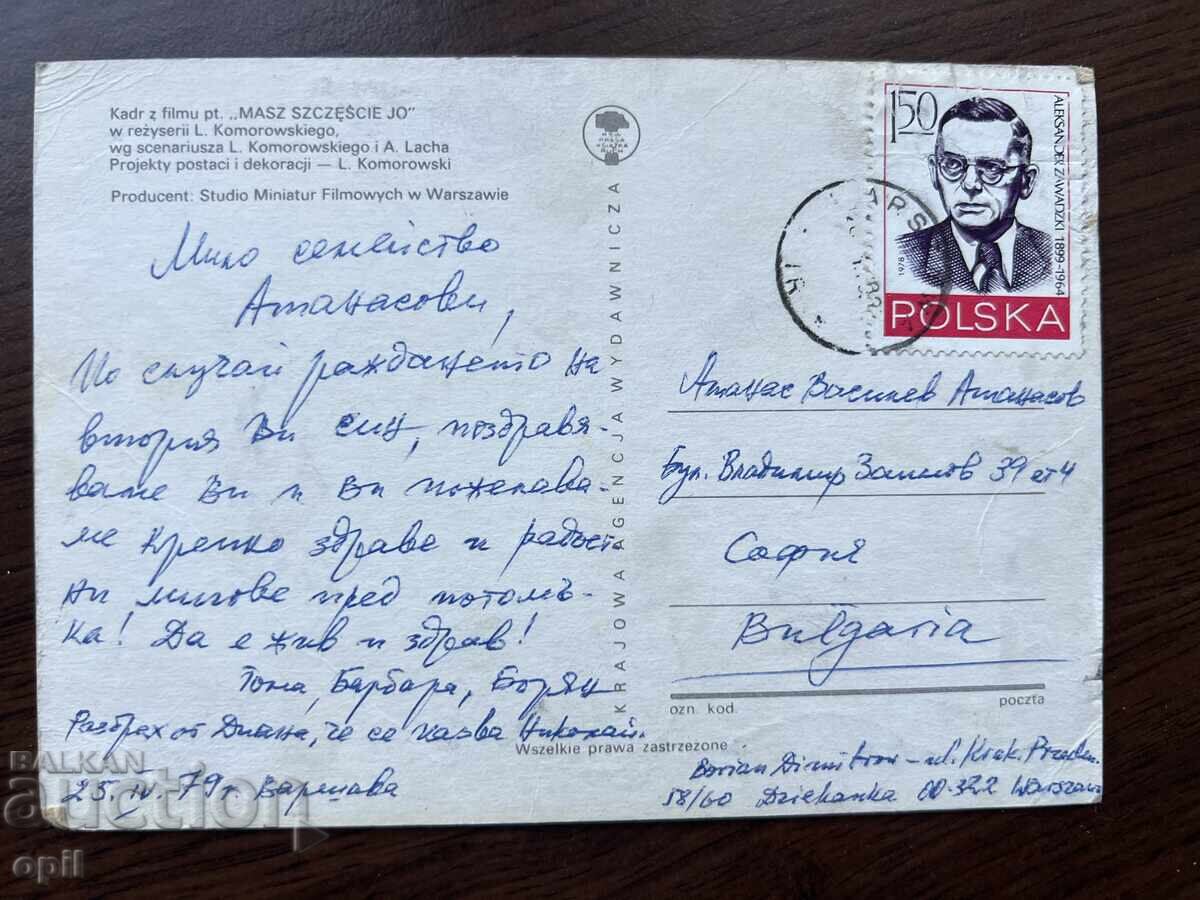 Kadr z filmu pt. „MASZ SZCZĘŚCIE JO"
w reżyserii L. Komorowskiego,
wg scenariusza L. Komorowskiego i A. Lacha
Projekty postaci i dekoracji — L. Komorowski
Producent: Studio Miniatur Filmowych w Warszawie
Мило семейство
Атанасови,
По случай раждането на
втория Ви син, поздравя-
ваме Ви и Ви пожелава-
ме крепко здраве и радост
ни мигове пред потомъ-
ка! Да е жив и здрав!
Тома, Барбара, Борян
Разбрах от Диана, че се казва Николай.
25. IV. 79 г Варшава
KRAJOWA AGENCJA WYDAWNICZA
RSW
PRASA
KSIĄŻKA
RUCH
Wszelkie prawa zastrzeżone
150
ALEKSANDER ZAWADZKI 1899-1964
1978
POLSKA
Атанас Василев Атанасов
Бул. Владимир Заимов 39 ет 4
София
Bulgaria
ozn. kod.
poczta
Borian Dimitrov - ul. Krak. Przedm.
58/60 Dziekanka 00-322 Warszawa
BALKAN
auction
opil